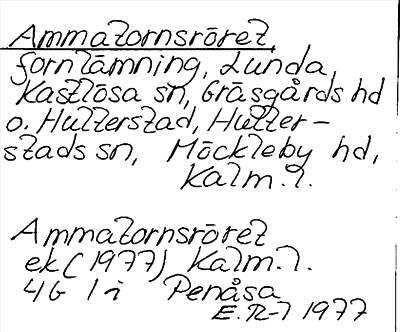 Ammatornsröret,
fornlämning, Lunda,
Kastlösa sn, Gräsgårds hd
o. Hulterstad, Hulter-
stads sn, Möckleby hd,
Kalm. l.
Ammatornsröret
ek (1977) Kalm. l.
4G 1 i Penåsa
E. R-l 1977